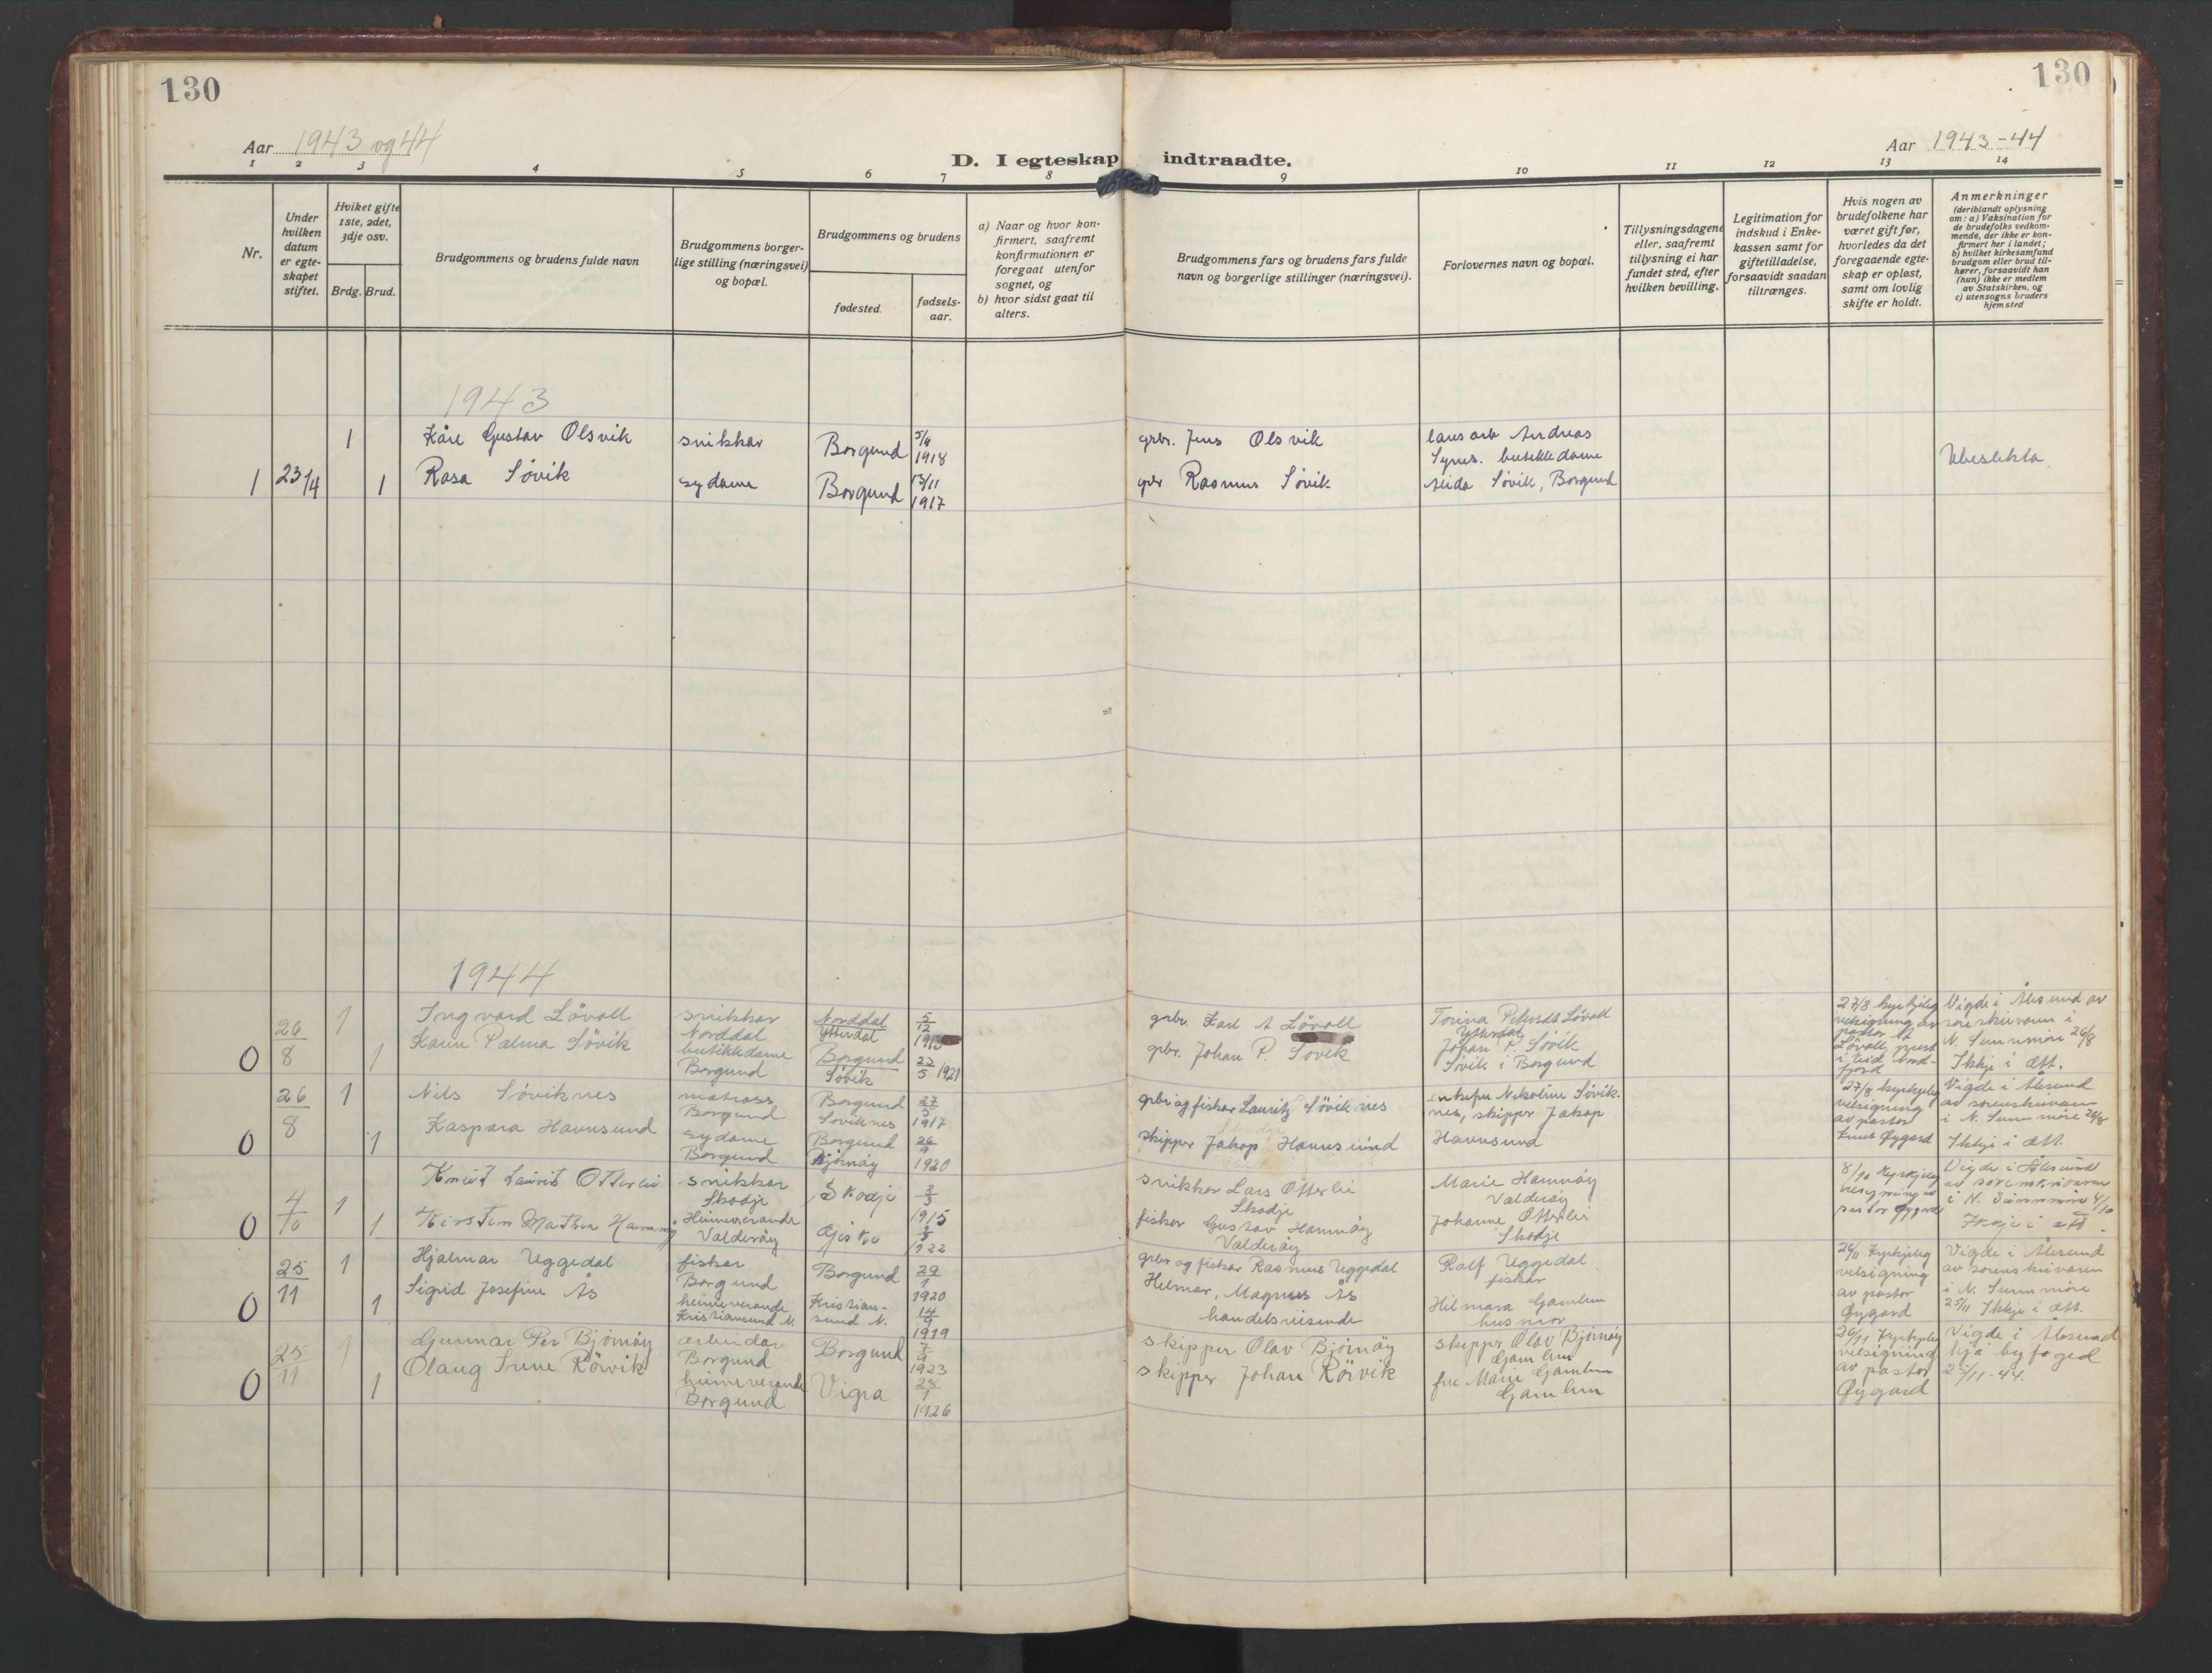 130
130
Aar 1943 og 44
Aar 1943-44
D. I egteskap indtraadte.
1 2 3 4 5 6 7 8 9 10 11 12 13 14
Nr.
Under hvilken datum er egteskapet stiftet.
Hviket gifte 1ste, 2det, 3dje osv.
Brdg. Brud.
Brudgommens og brudens fulde navn
Brudgommens borgerlige stilling (næringsvei) og bopæl.
Brudgommens og brudens
fødested.
fødselsaar.
a) Naar og hvor konfirmert, saafremt konfirmationen er foregaat utenfor sognet, og
b) hvor sidst gaat til alters.
Brudgommens fars og brudens fars fulde navn og borgerlige stillinger (næringsvei).
Forlovernes navn og bopæl.
Tillysningsdagene eller, saafremt tillysning ei har fundet sted, efter hvilken bevilling.
Legitimation for indskud i Enkekassen samt for giftetilladelse, forsaavidt saadan tiltrænges.
Hvis nogen av brudefolkene har været gift før, hvorledes da det foregaaende egteskap er opløst, samt om lovlig skifte er holdt.
Anmerkninger
(deriblandt oplysning om: a) Vaksination for de brudefolks vedkommende, der ikke er konfirmert her i landet; b) hvilket kirkesamfund brudgom eller brud tilhører, forsaavidt han (hun) ikke er medlem av Statskirken, og c) utensogns bruders hjemsted
1943
1 Kåre Gustav Olsvik snikkar Borgund 5/4 1918 grbr. Jens Olsvik Andreas
Synes. butikkdame
Ubeslekta
1 23/4 1 Rasa Søvik sydame Borgund 13/11 1917 gbr Rasmus Søvik Alida Søvik, Borgund
1944
26/8 1 Ingvard Lövoll snikkar Norddal Norddal Ytterdal 5/12 1915 grbr. Karl A Lövoll Torina Petersdt Lövoll
Ytterdal
27/8 kyrkjeleg velsigning av pastor A Lövoll, prest i Eid Nordfjord
Vigde i Ålesund av sorenskrivaren i N. Sunnmöre 26/8 Ikkje i ætt.
0 1 Karen Palma Søvik butikkdame Borgund Borgund Søvik 27/5 1921 gbr. Johan P. Søvik Johan P. Søvik
Søvik i Borgund
26/8 1 Nils Søviknes matross Borgund Borgund Søviknes 27/5 1917 gbr og fiskar Lauritz Søviknes enkefru Nikoline Søviknes, skipper Jakop Havnsund
27/8 kyrkjeleg velsigning av pastor Knut Øygard
Vigde i Ålesund av sorenskrivaren i N. Sunnmöre 26/8 Ikkje i ætt.
0 1 Kaspara Havnsund sydame Borgund Borgund Bjørnøy 26/9 1920 skipper Jakop Havnsund
4/10 1 Knut Laurits Otterlei snikkar Skodje Skodje 3/3 1915 snikkar Lars Otterlei Skodje Marie Hamnøy
Valderøy
8/10 Kyrkjeleg velsigning av pastor Øygard
Vigde i Ålesund av sorenskrivaren i N. Sunnmöre 4/10 Ikkje i ætt.
0 1 Kirsten Mathea Hamnøy Heimeverande Valderøy Gjiske 1922 fisker Gustav Hamnøy Valderøy Johanne Otterlei
Skodje
25/11 1 Hjalmar Uggedal fiskar Borgund Borgund 29/1 1920 gbr og fiskar Rasmus Uggedal Ralf Uggedal
fiskar
26/11 Kyrkjeleg velsigning av pastor Øygard
Vigde i Ålesund av sorenskrivaren i N. Sunnmöre 25/11 Ikkje i ætt.
0 1 Sigrid Josefine Ås heimeverande Kristiansund N. Kristiansund N. 14/9 1919 Helmar, Magnus Ås handelsreisende Hilmara Gamlem
husmor
25/11 1 Gunnar Per Bjørnøy arbeidar Borgund Borgund 7/9 1923 skipper Olav Bjørnøy skipper Olav Bjørnøy
Gamlem
26/11 Kyrkjeleg velsigning av pastor Øygard
Vigde i Ålesund hjå byfoged 25/11-44.
0 1 Olaug Irene Rörvik heimeverande Borgund Vigra 28/1 1926 skipper Johan Rörvik fru Marie Gamlem
Gamlem